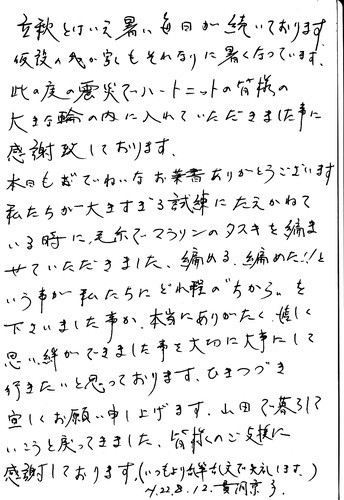 立秋とはいえ暑い毎日が続いております
仮設の我が家もそれなりに暑くなっています。
此の度の震災でハートニットの皆様の
大きな輪の内に入れていただきました事に
感謝致しております。
本日もごていねいなお葉書ありがとうございます
私たちが大きすぎる試練にたえかねて
いる時に、毛糸でマラソンのタスキを編ま
せていただきました、編める、編めた!!と
いう事が私たちにどれ程の"ちから"を
下さいました事か、本当にありがたく、嬉しく
思い、絆ができました事を大切に大事にして
行きたいと思っております、ひきつづき
宜しくお願い申し上げます、山田で暮らして
いこうと戻ってきました、皆様のご支援に
感謝しております、(いつもより乱筆乱文で失礼します。)
H.22.8.12.